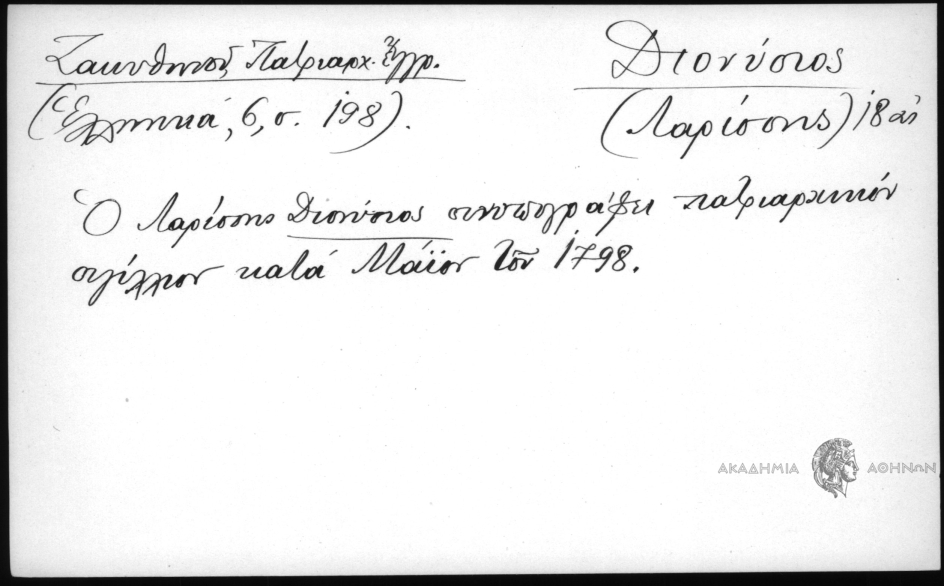 Ζακυθηνοῦ, Πατριαρχ. Ἔγγρ.
(Ἑλληνικά, 6, σ. 198).
Διονύσιος
(Λαρίσσης) 18 αἰ
Ὁ Λαρίσσης Διονύσιος συνυπογράφει πατριαρχικόν
σιγίλλιον κατά Μάϊον τοῦ 1798.
ΑΚΑΔΗΜΙΑ ΑΘΗΝΩΝ